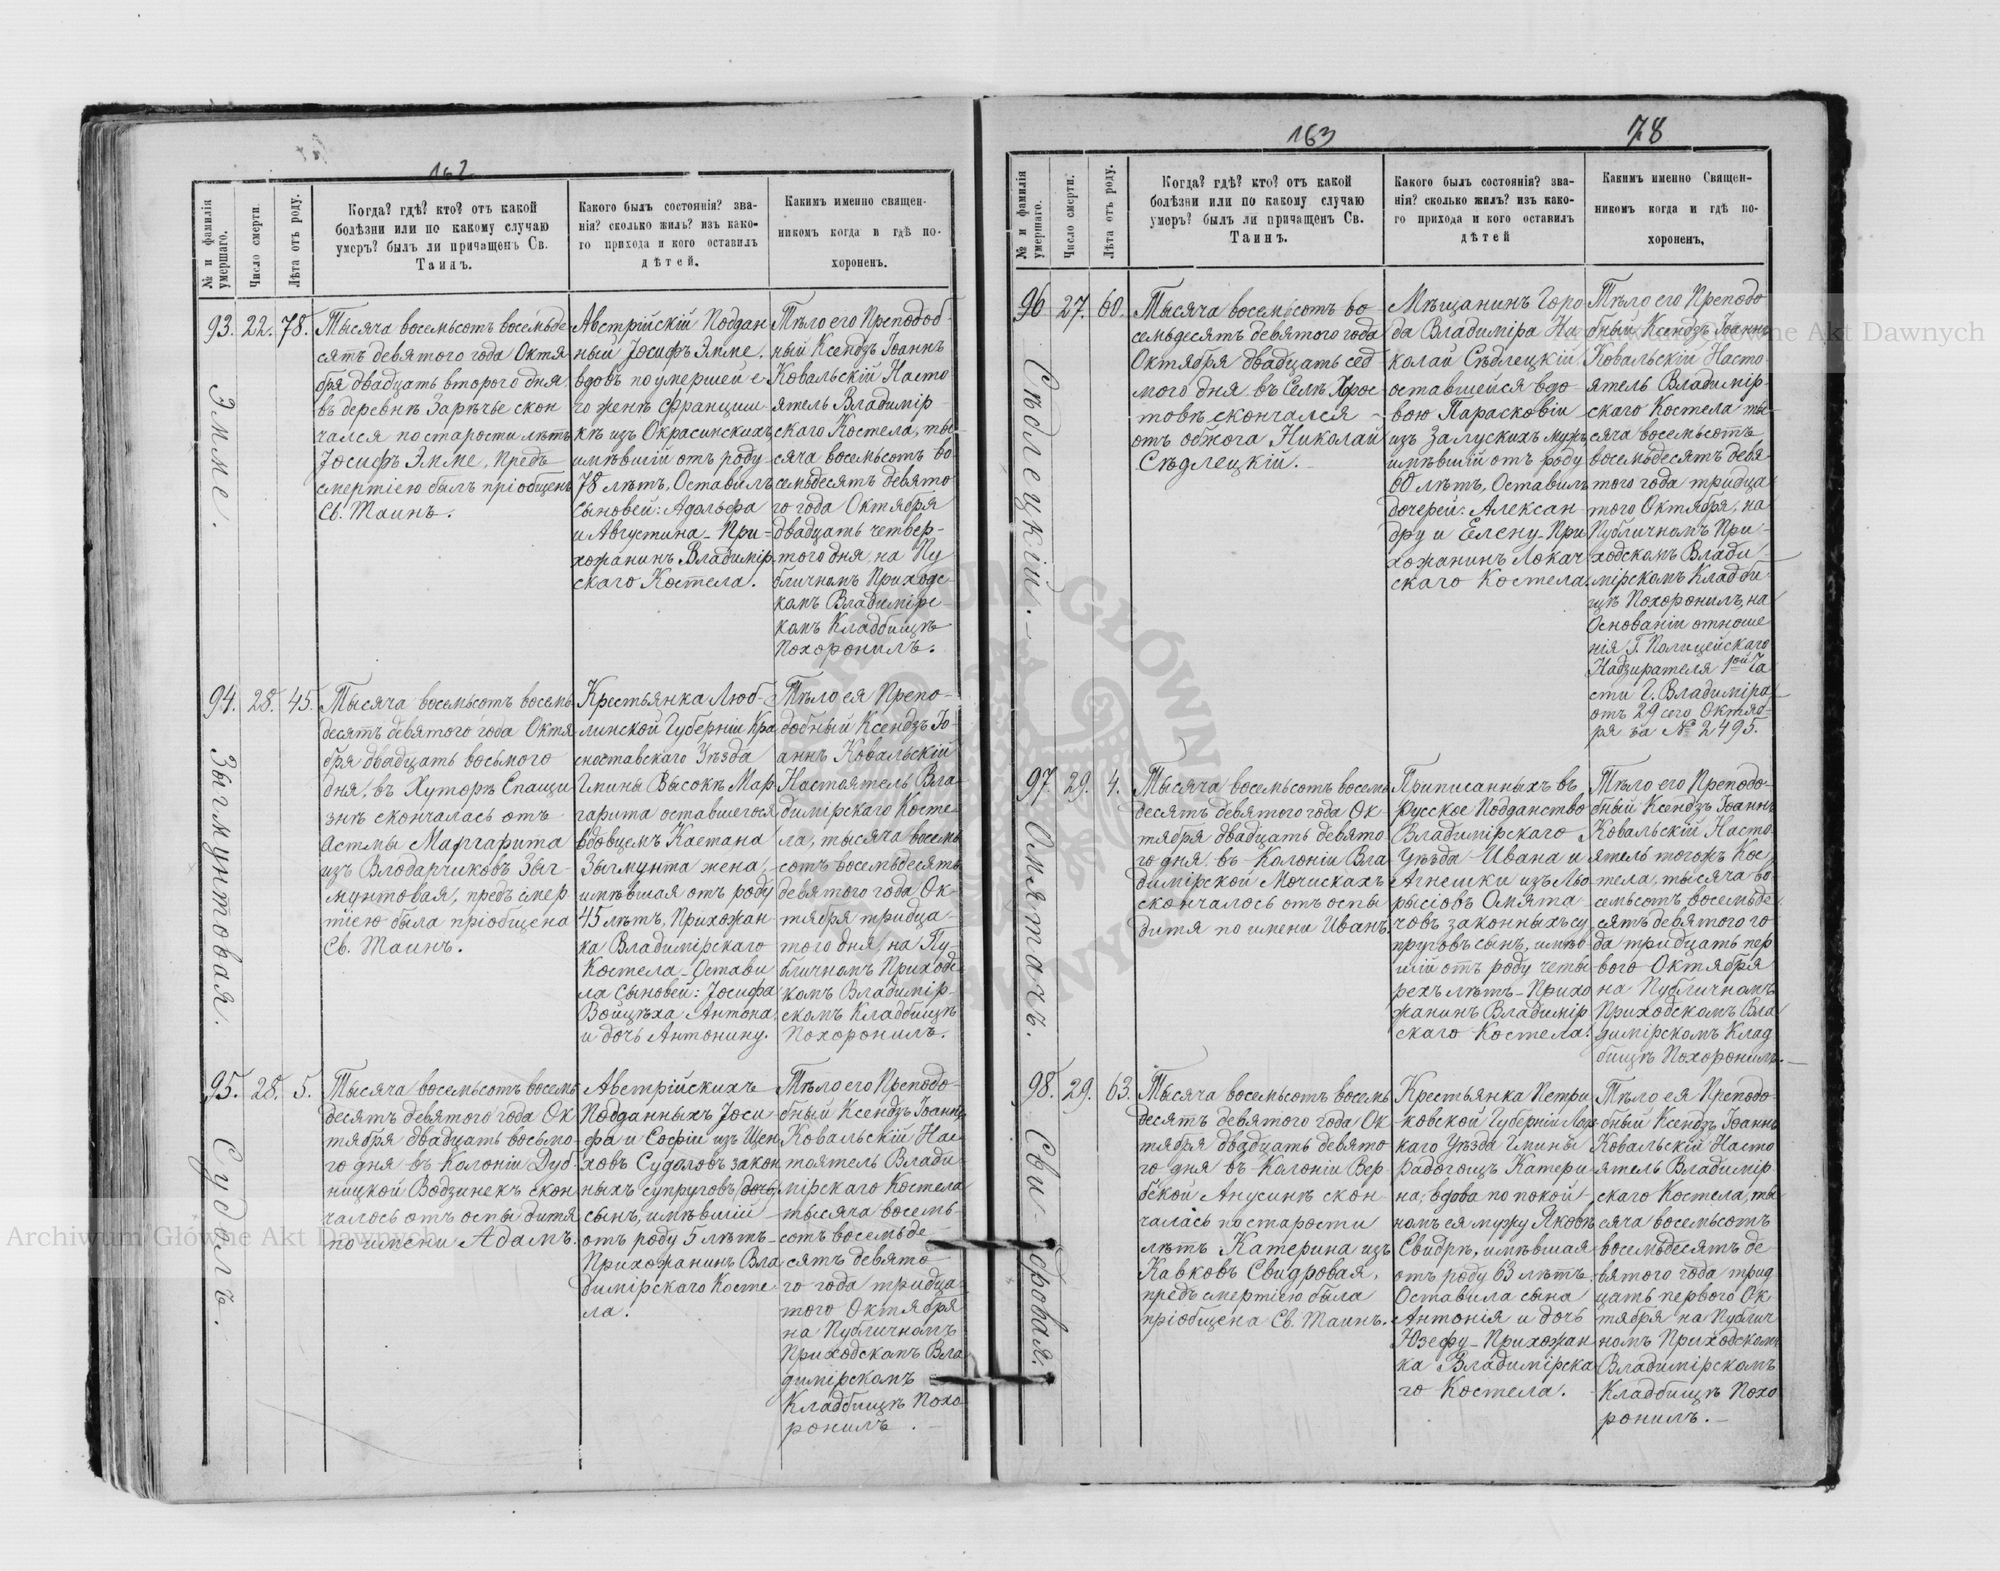 162
№ и фамилія умершаго.
Число смерти.
Лѣта отъ роду.
Когда? гдѣ? кто? отъ какой
болѣзни или по какому случаю
умеръ? былъ ли причащенъ Св.
Таинъ.
Какого былъ состоянія? зва-
нія? сколько жилъ? изъ како-
го прихода и кого оставилъ
дѣтей.
Каким именно священ-
никомъ когда и гдѣ по-
хороненъ.
93. 22. 78.
Эмме.
Тысяча восемьсотъ восемьде
сятъ девятого года Октя
бря двадцать второго дня
въ деревнѣ Зарѣчье скон
чался по старости лѣтъ
Іосифъ Эмме, предъ
смертіею былъ пріобщенъ
Св. Таинъ.
Австрійскій Поддан
ный Іосифъ Эмме.
вдовъ по умершей е
го женѣ Францишк-
кѣ изъ Окрасинскихъ,
имѣвшій отъ роду
78 лѣтъ, Оставилъ
Сыновей: Адольфа
и Августина - При-
хожанинъ Владимір
скаго Костела.
Тѣло его Преподоб-
ный Ксендзъ Іоаннъ
Ковальскій Насто
ятель Владимір-
скаго Костела, ты-
сяча восемьсотъ во-
семьдесятъ девято
го года Октября
двадцать четвер-
того дня, на Пу
бличномъ Приходс-
комъ Владимірс
комъ Кладбищѣ
Похоронилъ.
94. 28. 45.
Зыгмунтовая.
Тысяча восемьсотъ восемь
десятъ девятого года Октя
бря двадцать восьмого
дня, въ Хуторѣ Спащи
знѣ скончалась отъ
Астмы Маргарита
изъ Влодарчиковъ Зыг-
мунтовая, предъ смер
тіею была пріобщена
Св. Таинъ.
Крестьянка Люб-
линской Губерніи Кра
сноставскаго Уѣзда
Гмины Высокѣ Мар
гарита оставшегося
вдовцемъ Каетана
Зыгмунта жена,
имѣвшая отъ роду
45 лѣтъ, Прихожан
ка Владимірскаго
Костела - Остави
ла Сыновей: Іосифа
Войцѣха Антона,
и дочь Антонину.
Тѣло ея Препо-
добный Ксендзъ Іо-
аннъ Ковальскій
Настоятель Вла-
димірскаго Косте
ла, тысяча восемь
сотъ восемьдесятъ
девятого года Ок-
тября тридца-
того дня, на Пу-
бличномъ Приходс
комъ Владимір-
скомъ Кладбищѣ
Похоронилъ.
95. 28. 5.
Судолъ.
Тысяча восемьсотъ восемь
десятъ девятого года Ок
тября двадцать восьмо-
го дня въ Колоніи Дуб-
ницкой Водзинекъ скон
чалось отъ оспы дитя
по имени Адамъ.
Австрійскихъ
Подданныхъ Іоси
фа и Софіи изъ Щен
ховъ Судоловъ закон
ныхъ супруговъ дочь
сынъ, имѣвшій
отъ роду 5 лѣтъ-
Прихожанинъ Вла
димірскаго Косте
ла.
Тѣло его Преподо-
бный Ксендзъ Іоаннъ
Ковальскій Нас-
тоятель Влади-
мірскаго Костела
тысяча восемь-
сотъ восемьде-
сятъ девято-
го года тридца
того Октября
на Публичномъ
Приходскомъ Вла
димірскомъ
Кладбищѣ Похо
ронилъ.
163
78
№ и фамилія умершаго.
Число смерти.
Лѣта отъ роду.
Когда? гдѣ? кто? отъ какой
болѣзни или по какому случаю
умеръ? былъ ли причащенъ Св.
Таинъ.
Какого былъ состоянія? зва-
нія? сколько жилъ? изъ како-
го прихода и кого оставилъ
дѣтей
Какимъ именно Священ-
никомъ когда и гдѣ по-
хороненъ.
96 27. 60.
Сѣдлецкій.
Тысяча восемьсотъ во
семьдесятъ девятого года
Октября двадцать сед
мого дня въ Селѣ Хрос
товѣ скончался
отъ обжога Николай
Сѣдлецкій.
Мѣщанинъ Горо
да Владиміра Ни
колай Сѣдлецкій
оставшейся вдо-
вою Парасковіи
изъ Залускихъ мужъ
имѣвшій отъ роду
60 лѣтъ, Оставилъ
дочерей: Алексан
дру и Елену - При
хожанинъ Локач
скаго Костела.
Тѣло его Преподо
бный Ксендзъ Іоаннъ
Ковальскій Насто-
ятель Владимір-
скаго Костела ты-
сяча восемьсотъ
восемьдесятъ девя
того года тридца
того Октября, на
Публичномъ При-
ходскомъ Влади-
мірскомъ Кладби-
щѣ Похоронилъ, на
Основаніи отноше
нія Г. Полицейскаго
Надзирателя 1ой Ча
сти Г. Владиміра
отъ 29 сего Октяб-
ря за № 2495.
97 29. 4.
Омятачъ.
Тысяча восемьсотъ восемь
десятъ девятого года Ок-
тября двадцать девято
го дня въ Колоніи Вла
димірской Мочискахъ
скончалось отъ оспы
дитя по имени Иванъ.
Приписанныхъ въ
Русское Подданство
Владимірскаго
Уѣзда Ивана и
Агнешки изъ Льо
рысіовъ Омята
човъ законныхъ су
пруговъ сынъ, имѣв
шій отъ роду четы
рехъ лѣтъ - Прихо
жанинъ Владимір
скаго Костела.
Тѣло его Преподо-
бный Ксендзъ Іоаннъ
Ковальскій Насто
ятель тогожъ Кос
тела, тысяча во-
семьсотъ восемьде
сятъ девятого го-
да тридцать пер
вого Октября
на Публичномъ
Приходскомъ Вла
димірскомъ Клад
бищѣ Похоронилъ.
98. 29. 63.
Свидровая.
Тысяча восемьсотъ восемь
десятъ девятого года Ок
тября двадцать девято
го дня въ Колоніи Вер-
бской Анусинѣ скон-
чалась по старости
лѣтъ Катерина изъ
Кавковъ Свидровая,
предъ смертію была
пріобщена Св. Таинъ.
Крестьянка Петри
ковской Губерніи Лод
каго Уѣзда Гмины
Радогощъ Катери
на, вдова по покой
номъ ея мужу Яковѣ
Свидрѣ, имѣвшая
отъ роду 63 лѣтъ
Оставила сына
Антонія и дочь
Юзефу - Прихожан
ка Владимірска
го Костела.
Тѣло ея Преподо-
бный Ксендзъ Іоаннъ
Ковальскій Насто
ятель Владимір
скаго Костела, ты
сяча восемьсотъ
восемьдесятъ де
вятого года трид
цать первого Ок
тября на Публич
номъ Приходскомъ
Владимірскомъ
Кладбищѣ Похо
ронилъ.
Archiwum Główne Akt Dawnych
Archiwum Główne Akt Dawnych